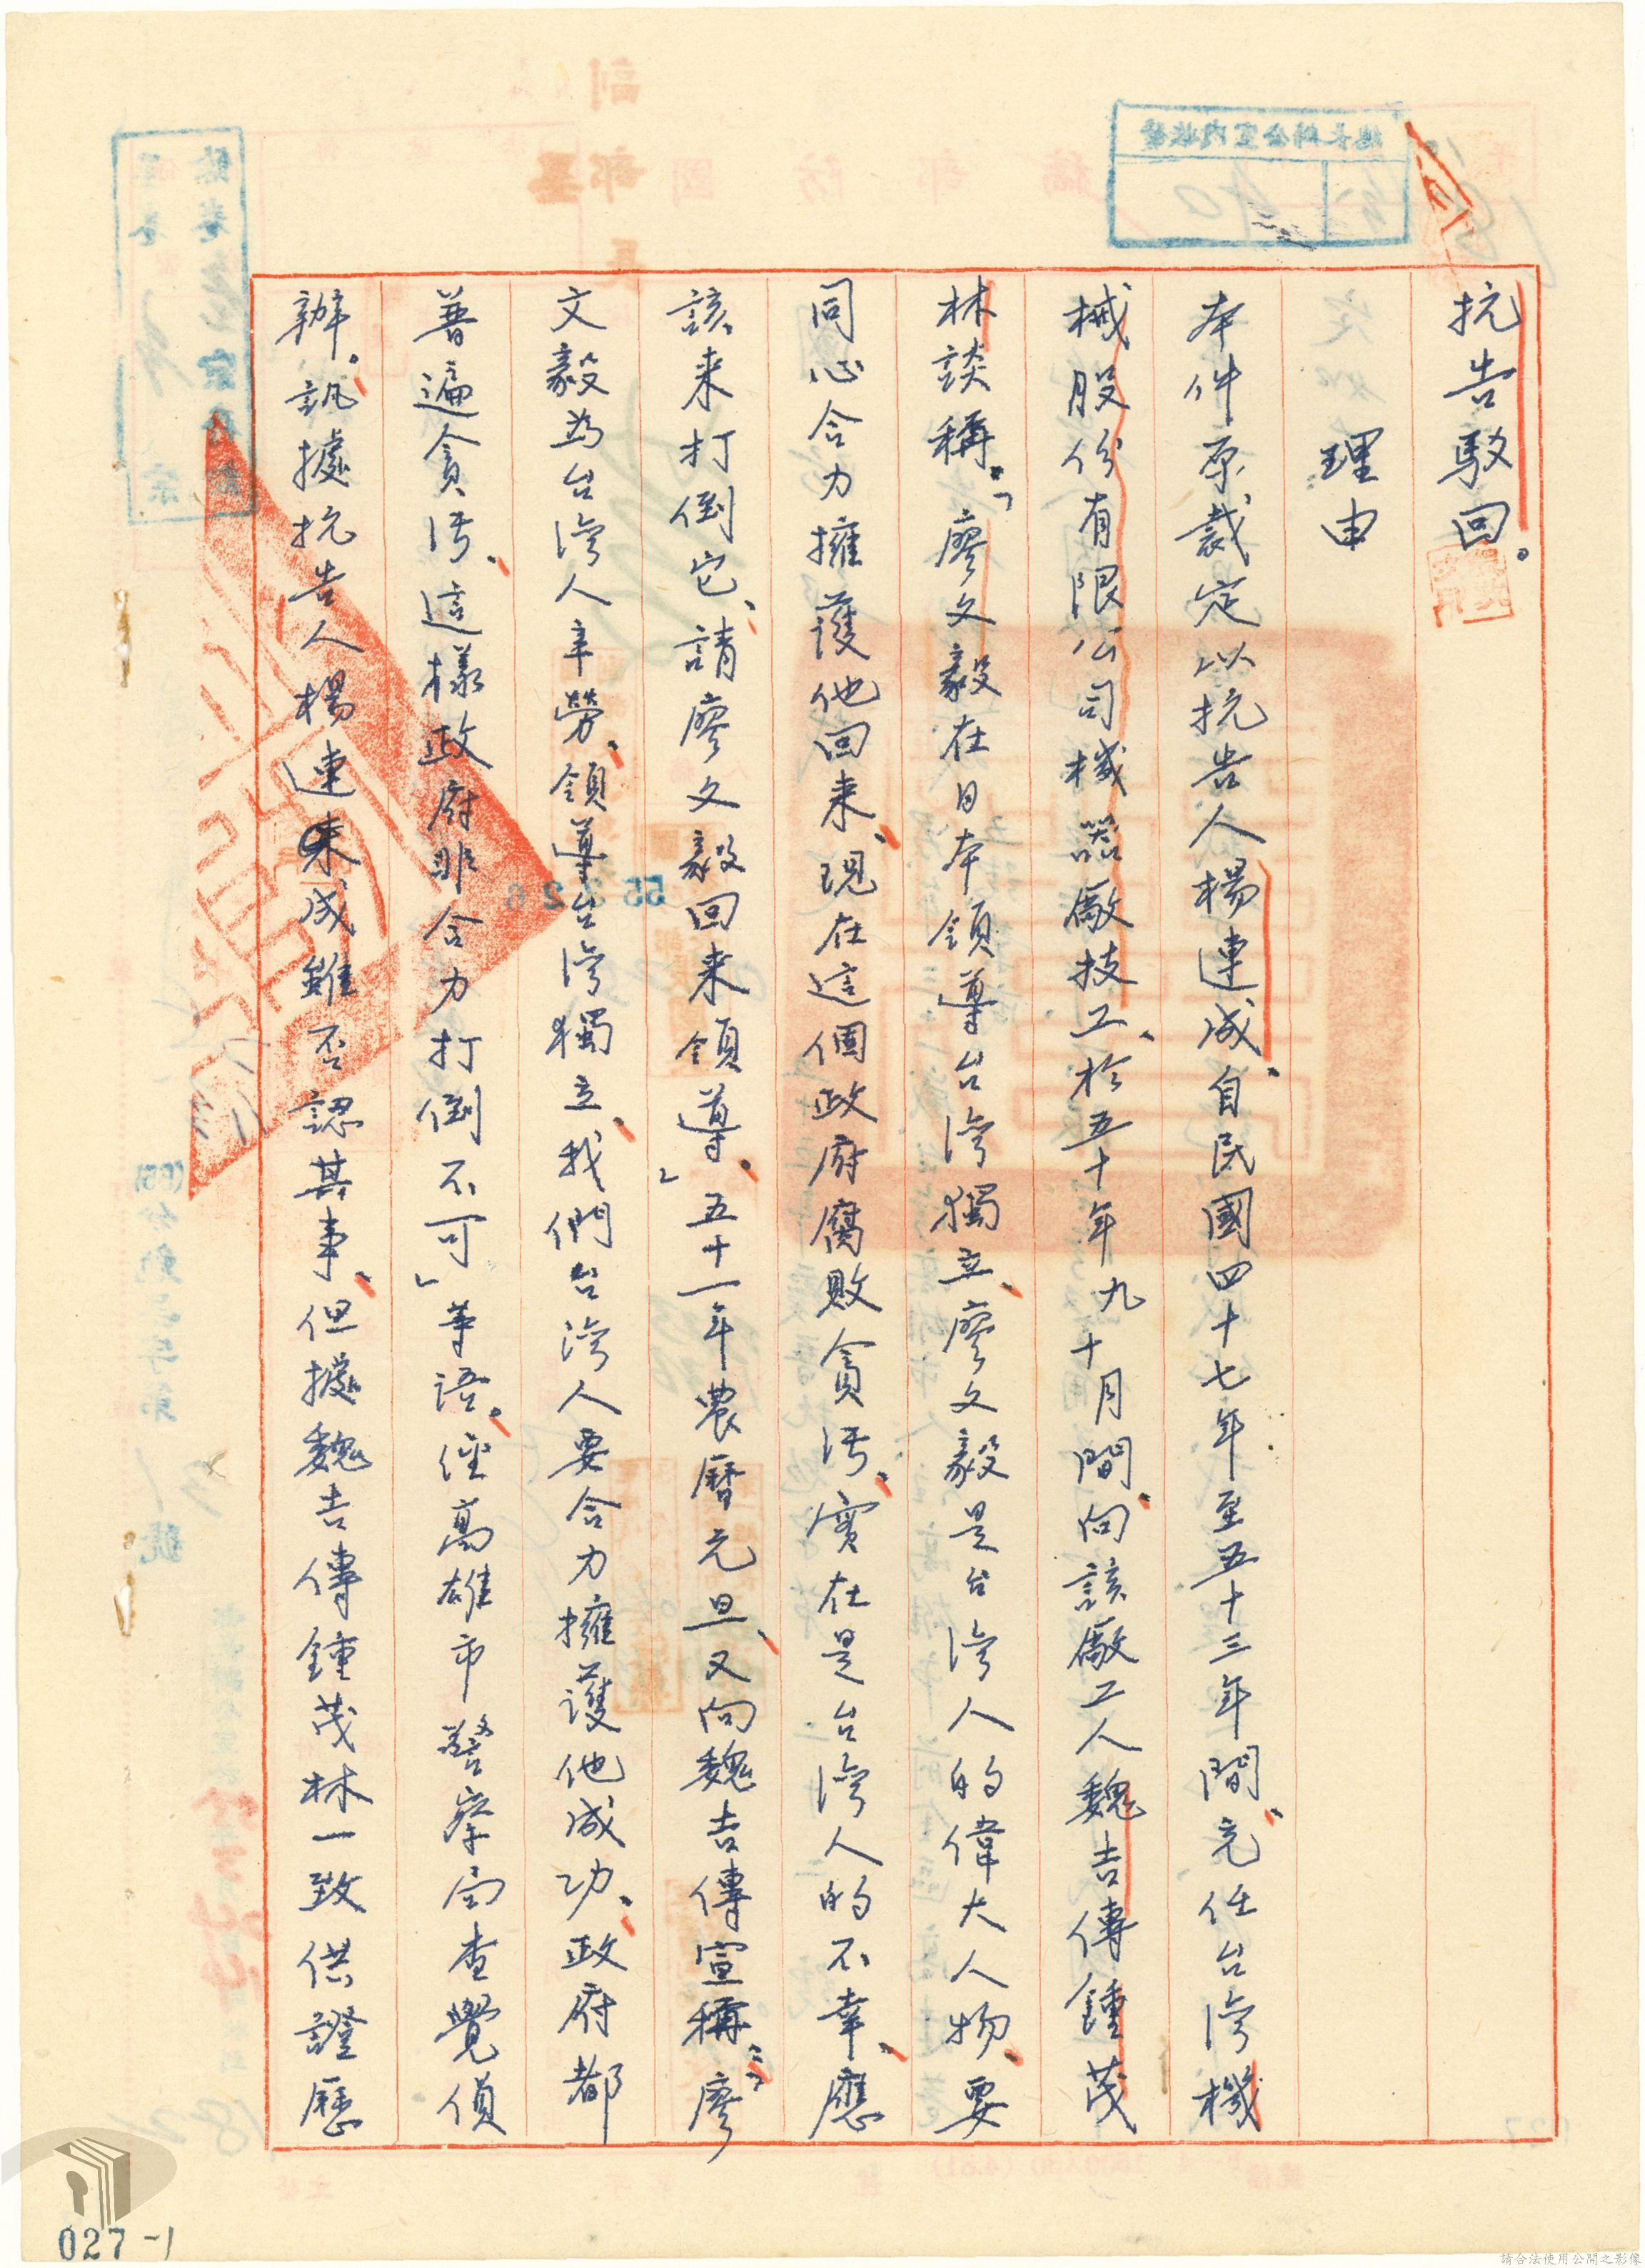 抗告駁回。
理由
本件原裁定以抗告人楊連成、自民國四十七年至五十三年間、充任台湾機
械股份有限公司機器廠技工、於五十年九十月間、向該廠工人魏吉傳鍾茂
林談稱:「廖文毅在日本領導台湾獨立、廖文毅是台湾人的偉大人物、要
同心合力擁護他回来、現在這個政府腐敗貪污、實在是台湾人的不幸、應
該来打倒它、請廖文毅回来領導、」五十一年農曆元旦、又向魏吉傳宣稱:「廖
文毅為台湾人辛勞、領導台湾獨立、我們台湾人要合力擁護他成功、政府都
普遍貪污、這樣政府非合力打倒不可」等語。經高雄市警察局查覺偵
辦。訊據抗告人楊連成雖否認其事、但據魏吉傳鍾茂林一致供證歷
027-1
請合法使用公開之影像